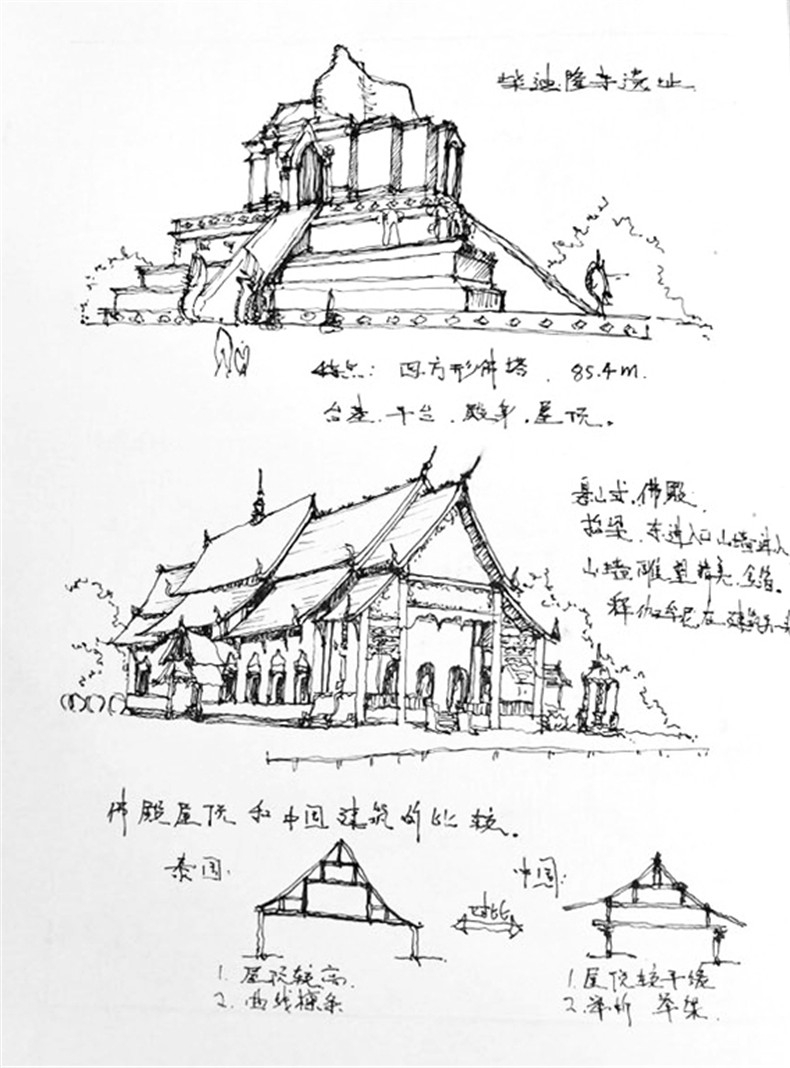 柴迪隆寺遗址
特点：四方形佛塔，85.4m.
台基、平台、殿身、屋顶。
悬山式佛殿
抬梁、东进入口山墙进入
山墙雕塑精美，金箔。
释伽牟尼在建筑
佛殿屋顶和中国建筑的比较。
泰国：
中国：
对比
1. 屋顶较高.
2. 曲线檩条
1. 屋顶较平缓
2. 举折 举架.